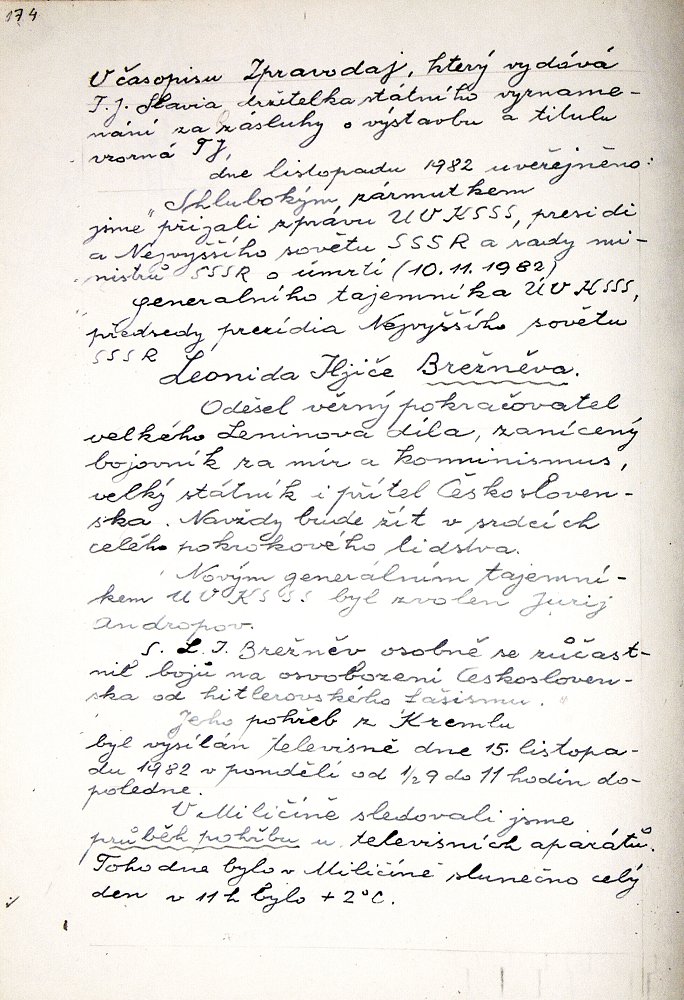 174
V časopisu Zpravodaj, který vydává
T.J. Slavia, držitelka státního vyzname-
nání za zásluhy o výstavbu a titulu
vzorná TJ,
dne listopadu 1982 uveřejněno:
S hlubokým zármutkem
jsme přijali zprávu ÚV KSSS, presidi
a Nejvyššího sovětu SSSR a rady mi-
nistrů SSSR o úmrtí (10.11.1982)
generalního tajemníka ÚV KSSS,
předsedy prezídia Nejvyššího sovětu
SSSR
Leonida Iljiče Brežněva.
Odešel věrný pokračovatel
velkého Leninova díla, zanícený
bojovník za mír a kominismus,
velký státník i přítel Českosloven-
ska. Navždy bude žít v srdcích
celého pokrokového lidstva.
Novým generálním tajemní-
kem ÚV KSSS byl zvolen Jurij
Andropov.
S. L. I. Brežněv osobně se zůčast-
nil bojů na osvobození Českosloven-
ska od hitlerovského fašismu."
Jeho pohřeb z Kremlu
byl vysílán televisně dne 15. listopa-
du 1982 v pondělí od 1/2 9 do 11 hodin do-
poledne.
V Miličíně sledovali jsme
průběh pohřbu u televisních aparátů.
Toho dne bylo v Miličíně slunečno celý
den v 11 h bylo + 2°C.